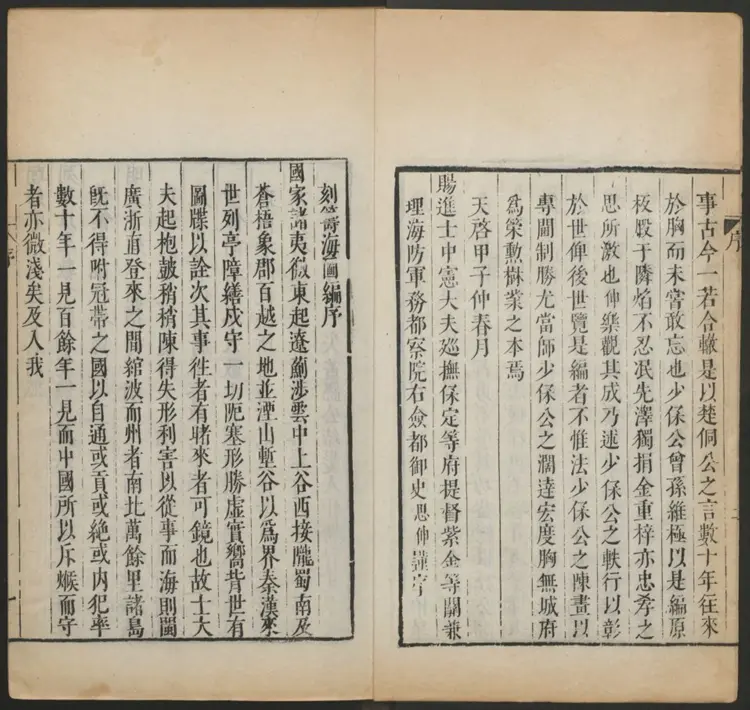 序
事古今一若合轍是以楚侗公之言數十年往來
於胸而未嘗敢忘也少保公曾孫維極以是編原
板毀于隣焰不忍泯先澤獨捐金重梓亦忠孝之
思所激也伸樂觀其成乃述少保公之軼行以彰
於世俾後世覽是編者不惟法少保公之陳畫以
專閫制勝尤當師少保公之濶達宏度胸無城府
爲榮勲樹業之本焉
天啓甲子仲春月
賜進士中憲大夫廵撫保定等府提督紫金等關兼
理海防軍務都察院右僉都御史思伸謹序
刻籌海圖編序
國家諸夷徼東起遼薊涉雲中上谷西接隴蜀南及
蒼梧象郡百越之地並湮山塹谷以爲界秦漢來
世列亭障繕戍守一切阨塞形勝虛實嚮背世有
圖牒以詮次其事徃者有睹來者可鏡也故士大
夫起枹鼓稍稍陳得失形利害以從事而海則閩
廣浙直登來之間綰波而州者南北萬餘里諸島
旣不得咐冠帶之國以自通或貢或絶或内犯率
數十年一見百餘年一見而中國所以斥堠而守
者亦微淺矣及入我